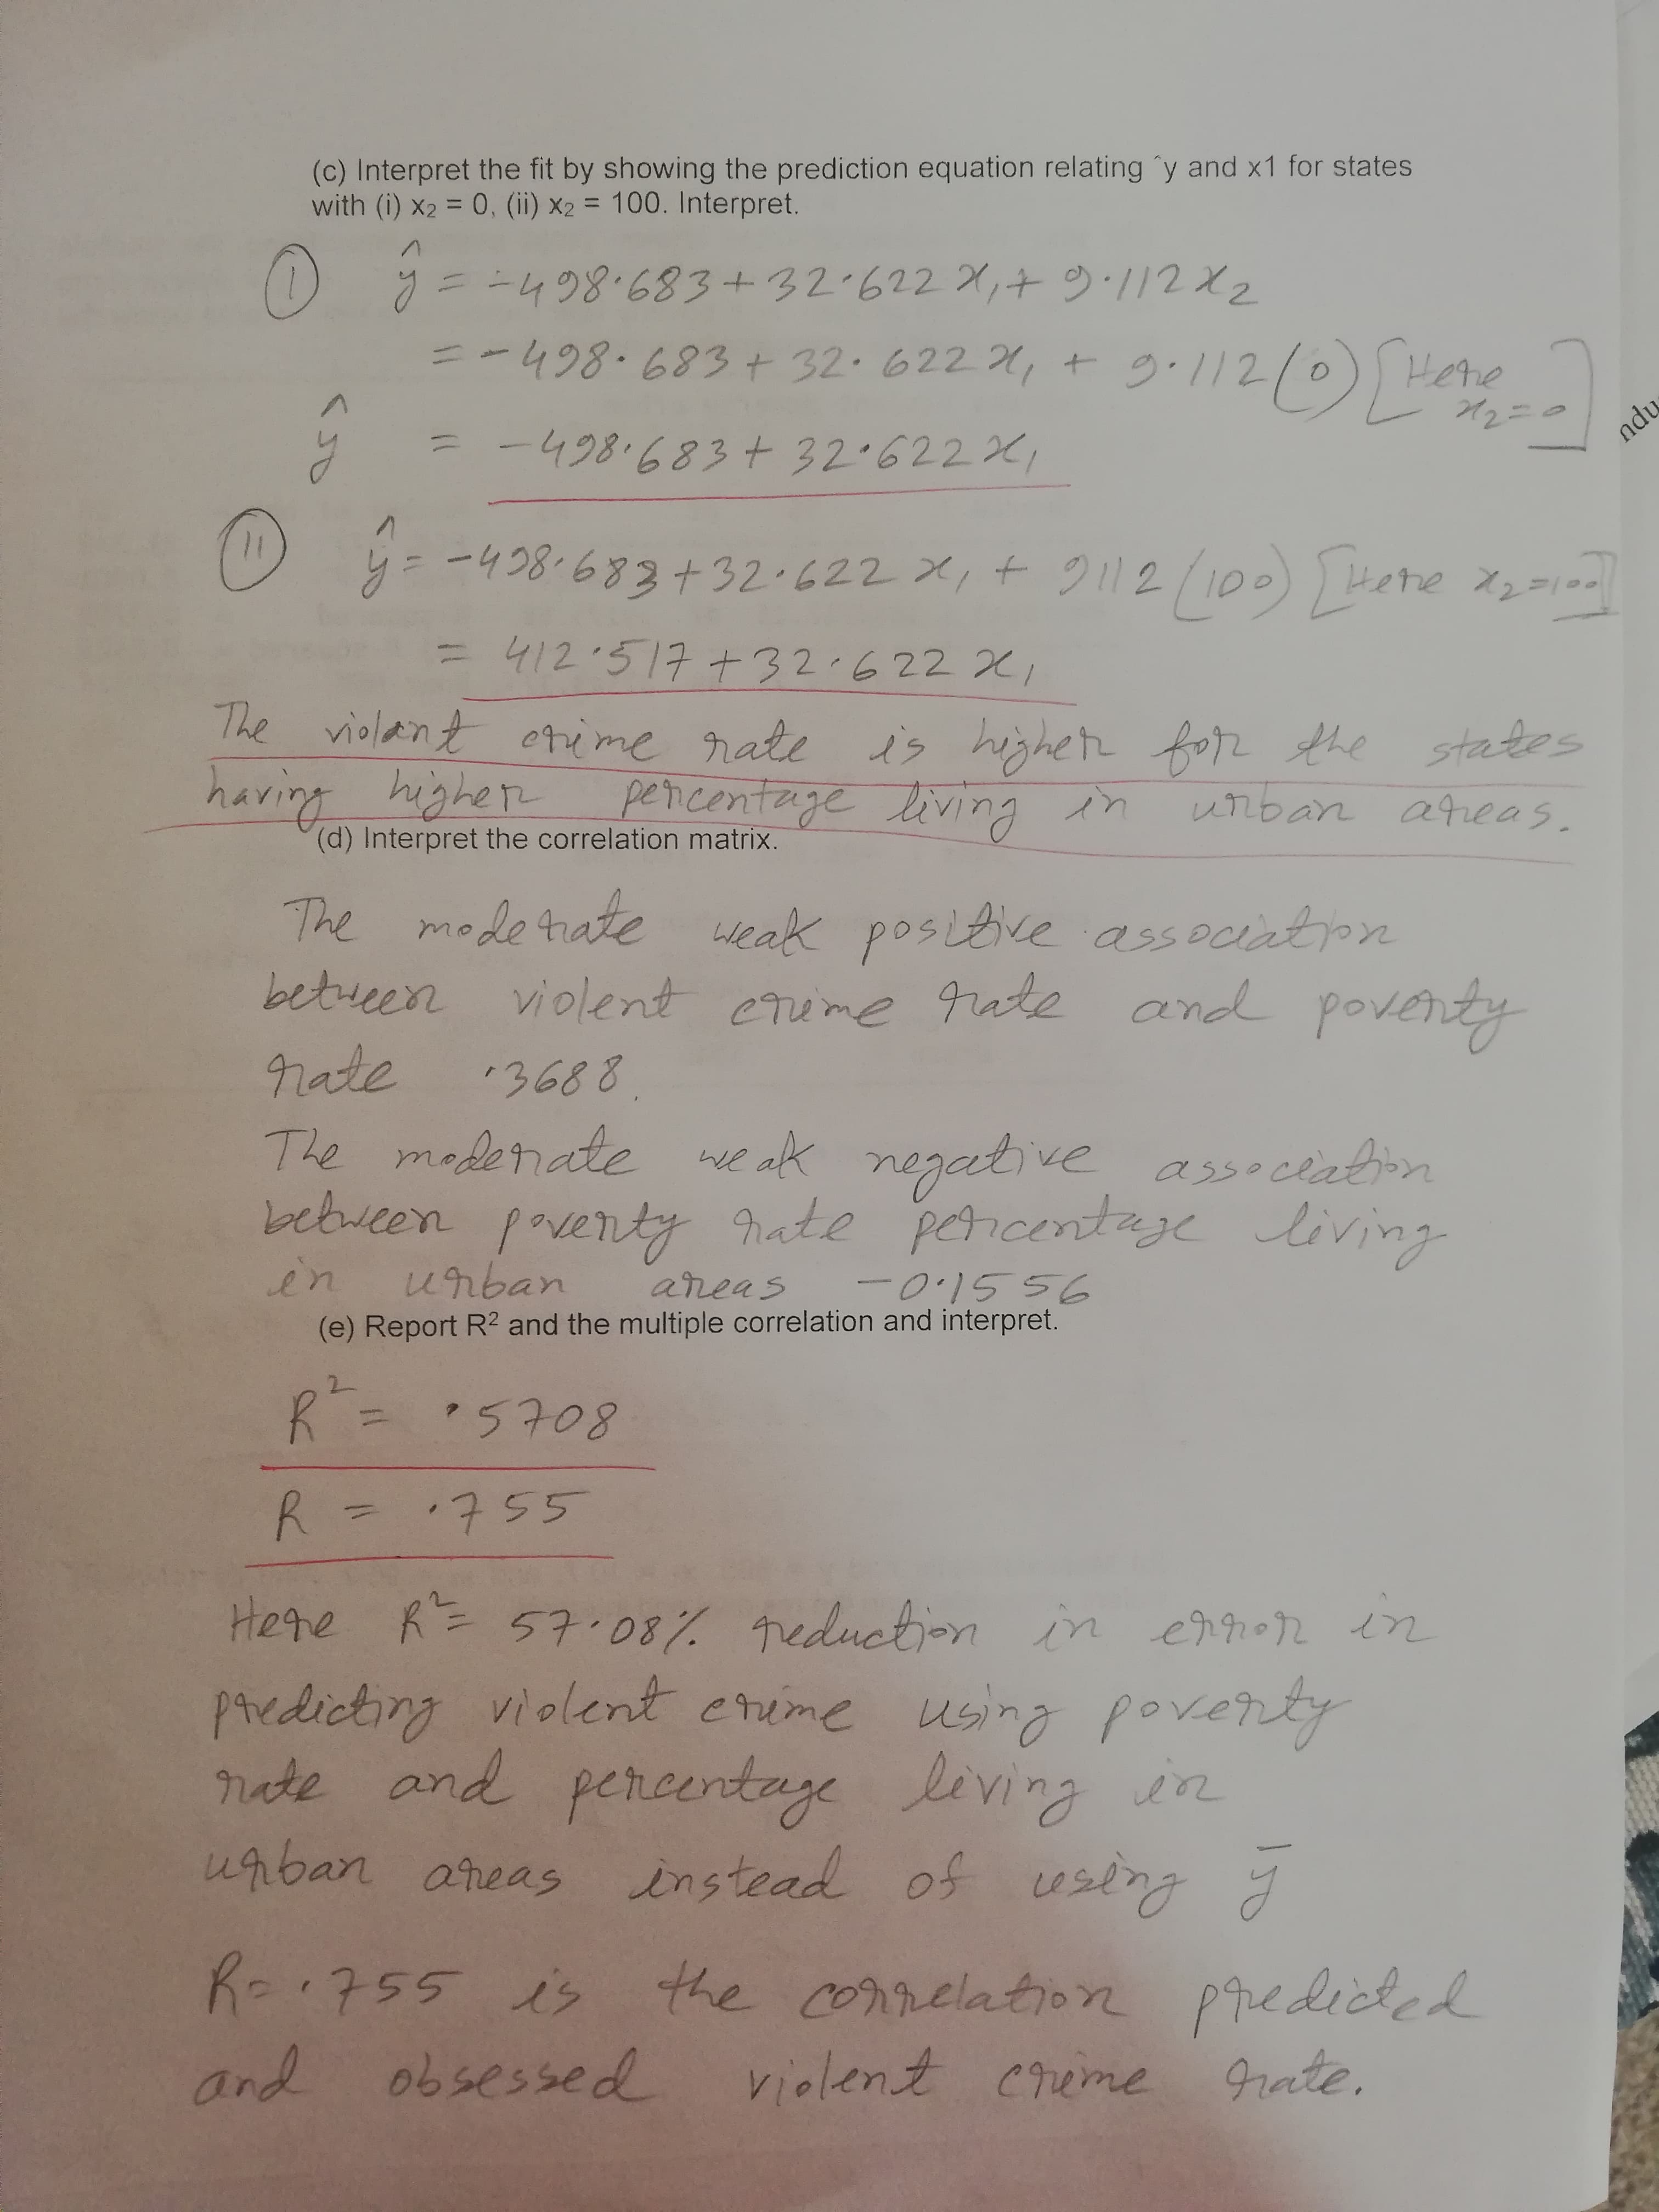 (c) Interpret the fit by showing the prediction equation relating ^y and x1 for states
with (i) x₂ = 0, (ii) x₂ = 100. Interpret.
(i) ŷ = -498.683 + 32.622 x₁ + 9.112 x₂
= -498.683 + 32.622 x₁ + 9.112 (0) [Here x₂ = 0]
ndu
ŷ = -498.683 + 32.622 x₁
(ii) ŷ = -498.683 + 32.622 x₁ + 9112 (100) [Here x₂ = 100]
= 412.517 + 32.622 x₁
The violant crime rate is higher for the states
having higher percentage living in urban areas.
(d) Interpret the correlation matrix.
The moderate weak positive association
between violent crime rate and poverty
rate .3688.
The moderate weak negative association
between poverty rate percentage living
in urban areas -0.1556
(e) Report R² and the multiple correlation and interpret.
R² = .5708
R = .755
Here R² = 57.08% reduction in error in
predicting violent crime using poverty
rate and percentage living in
urban areas instead of using ȳ
R = .755 is the correlation predicted
and obsessed violent crime rate.